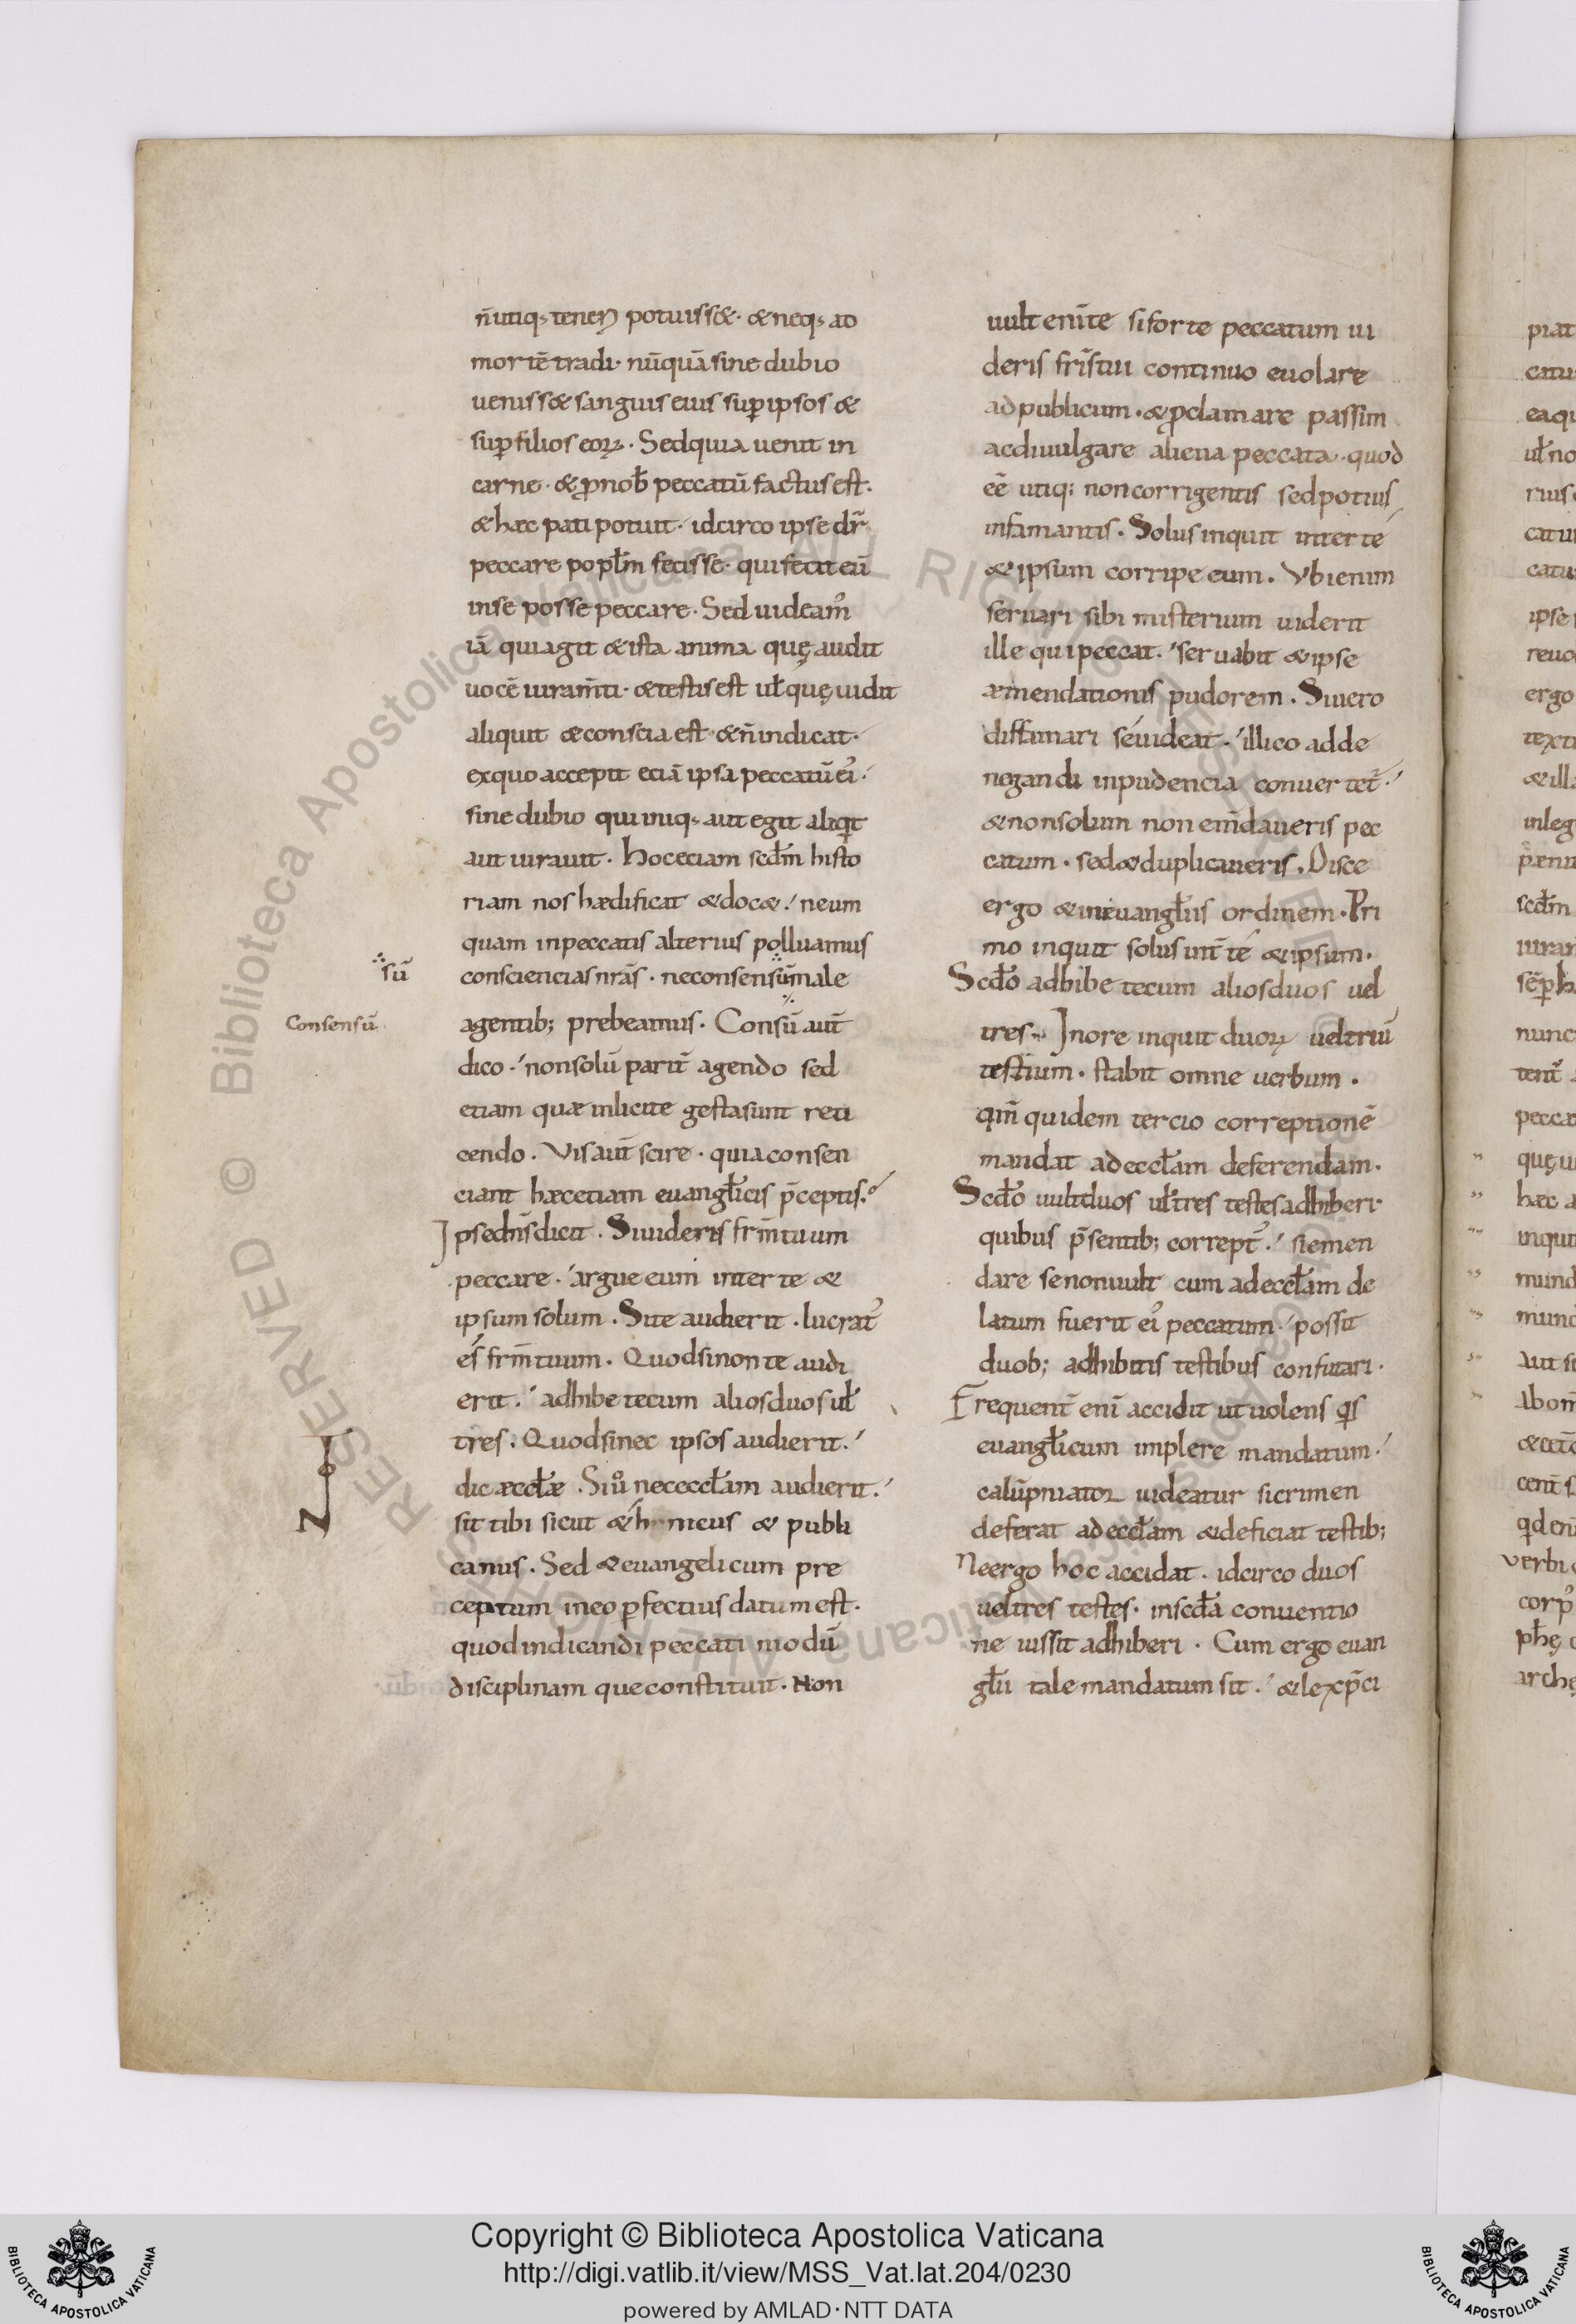 n̄utiq; teneri potuiss&. & neq; ad
mortē tradi. nūquā sine dubio
ueniss& sanguis eius sup ipsos &
sup filios eoꝝ. Sed quia uenit in
carne. & ꝓ nob̄ peccatū factus est.
& hæc pati potuit. idcirco ipse dr̄
peccare popl̄m fecisse. qui fecit eū
in se posse peccare. Sed uideam᾽
iā quiagit & ista anima quę audit
uocē iuram̄ti. & testis est ul̄ quę uidit
aliquit & conscia est & n̄ indicat.
ex quo accepit eciā ipsa peccatū ei᾽.
sine dubio qui iniq; aut egit aliqit
aut iurauit. hoc eciam scd̄m histo
riam nos hædificat & doc&. neum
quam in peccatis alterius polluamus
consciencias nr̄as. ne consensūmale
agentib; prebeamus. Consū aut̄
dico. non solū parit̄ agendo sed
etiam quæ inlicite gesta sunt reti
cendo. Vis aut̄ scire. quia consen
ciant hæc etiam euangl̄icis p̄ceptis.
Ipse dn̄s dicit. Si uideris fr̄m tuum
peccare. argue eum inter te &
ipsum solum. Si te audierit. lucrat᾽
es fr̄m tuum. Quod si non te audi
erit. adhibe tecum alios duos ul̄
tres. Quod si nec ipsos audierit.
dic æccl̄æ. Si ů nec eccl̄am audierit.
sit tibi sicut & hnicus & publi
canus. Sed & euangelicum pre
ceptum in eo perfectius datum est.
quod indicandi peccati modū
disciplinam que constituit. Non
sū
Consensū
uult enī te si forte peccatum ui
deris fr̄is tui continuo euolare
ad publicum. & ꝓclamare passim
ac diuulgare aliena peccata. quod
eē utiq; non corrigentis sed potius
infamantis. Solus inquit inter te
& ipsum corripe eum. Vbi enim
seruari sibi misterium uiderit
ille qui peccat. seruabit & ipse
æmendationis pudorem. Si uero
diffamari se uideat. illico adde
negandi inpudencia conuertet̄.
& non solum non em̄daueris pec
catum. sed & duplicaueris. Disce
ergo & in euangl̄iis ordinem. Pri
mo inquit solus int̄ te & ipsum.
Scd̄o adhibe tecum alios duos uel
tres. In ore inquit duoꝝ uel triū
testium. stabit omne uerbum.
qm̄ quidem tercio correptionē
mandat ad eccl̄am deferendam.
Scd̄o uult duos ul̄ tres testes adhiberi.
quibus p̄sentib; corrept᾽. si emen
dare se non uult cum ad eccl̄am de
latum fuerit ei᾽ peccatum. possit
duob; adhibitis testibus confutari.
Frequent̄ enī accidit ut uolens qis
euangl̄icum implere mandatum.
calūpniator uideatur si crimen
deferat ad eccl̄am & deficiat testib;
Ne ergo hoc accidat. idcirco duos
uel tres testes. in scd̄a conuentio
ne iussit adhiberi. Cum ergo euan
gl̄ii tale mandatum sit. & lex p̄ci
piat
catu
ipse
ergo
nunc
peccat
quęu
hæc a
inquit
mund
verbi
Copyright © Biblioteca Apostolica Vaticana
http://digi.vatlib.it/view/MSS_Vat.lat.204/0230
powered by AMLAD·NTT DATA
BIBLIOTECA APOSTOLICA VATICANA
BIBLIOTECA APOSTOLICA VATICANA